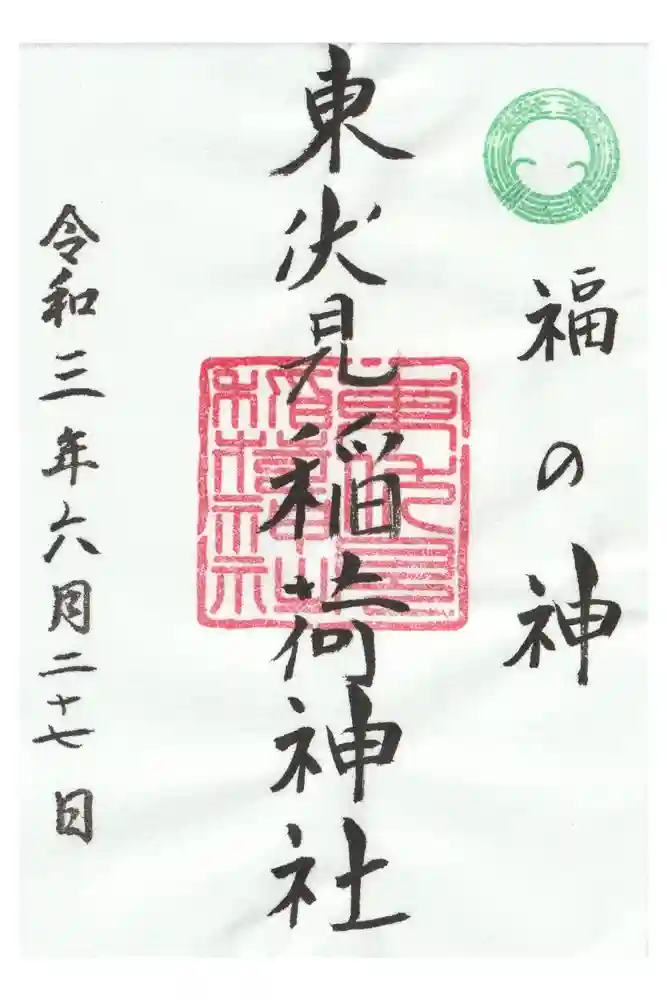 福の神
東伏見稲荷神社
令和三年六月二十七日